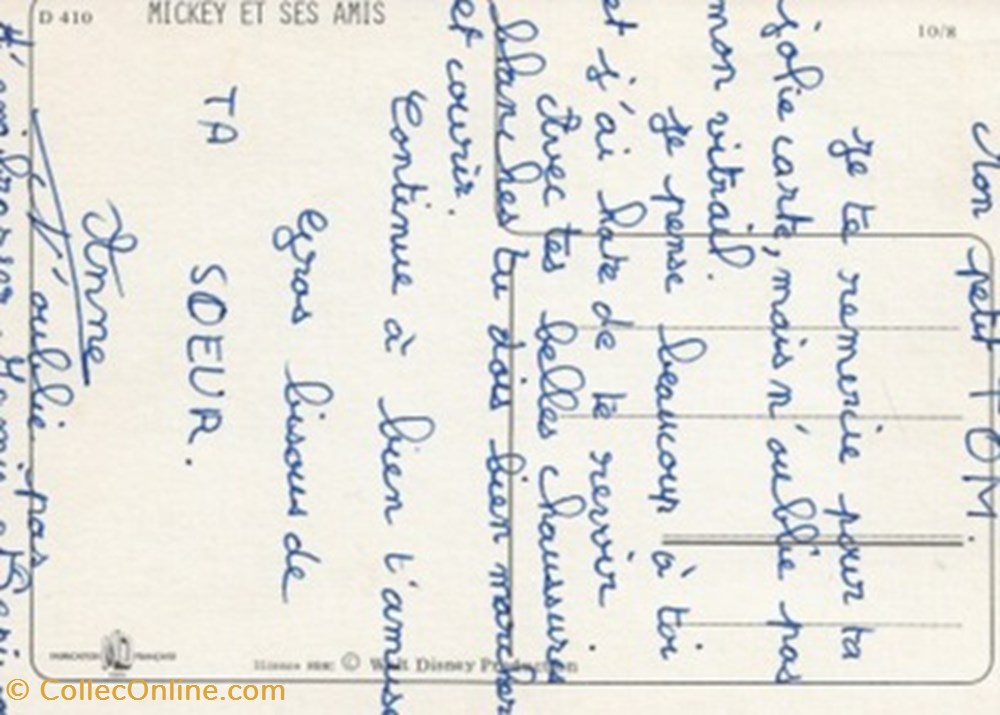 D 410
MICKEY ET SES AMIS
10/8
Mon petit TOM.
Je te remercie pour ta
jolie carte, mais n'oublie pas
mon vitrail.
Je pense beaucoup à toi
et j'ai hate de te revoir.
Avec tes belles chaussures
blanches tu dois bien marcher
et courir.
Continue à bien t'amuse
Gros bisous de
TA SOEUR.
Anne
N'oublie pas
d'embrasser Mamie et
FABRICATION FRANÇAISE
licence © Walt Disney Production
© CollecOnline.com